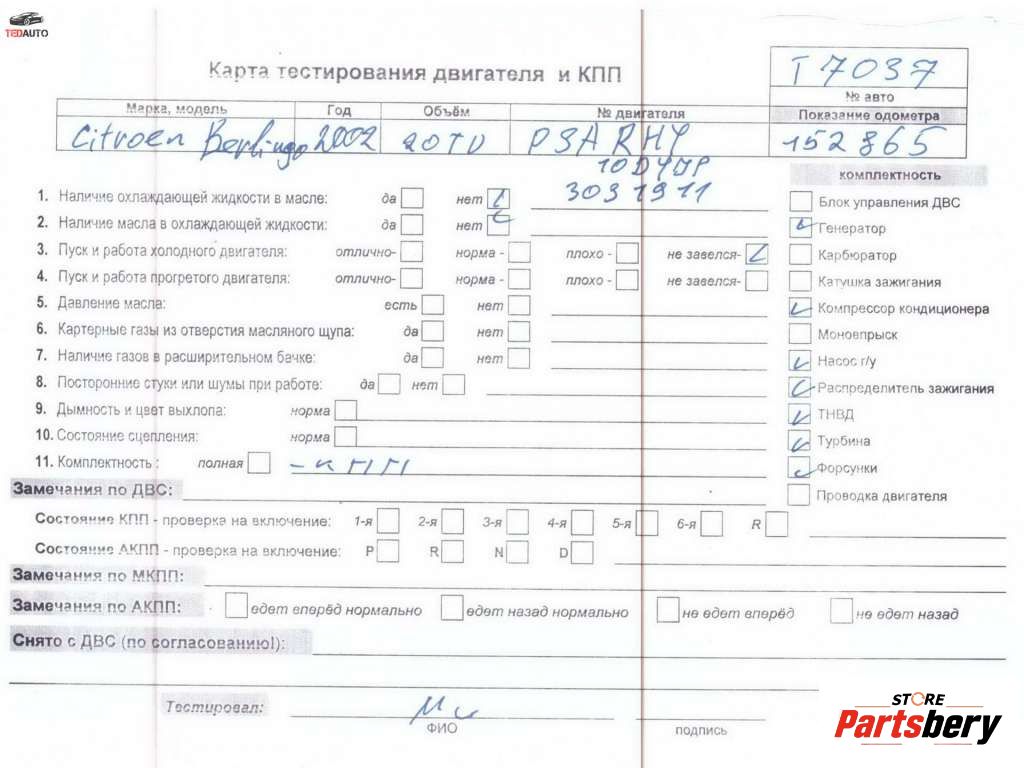 TEDAUTO
Карта тестирования двигателя и КПП
T 7037
№ авто
Марка, модель Год Объём № двигателя Показание одометра
Citroen Berlingo 2002 20TD PSARHY 152865
10DYUP
3031911
комплектность
1. Наличие охлаждающей жидкости в масле: да нет
Блок управления ДВС
2. Наличие масла в охлаждающей жидкости: да нет
Генератор
3. Пуск и работа холодного двигателя: отлично- норма - плохо - не завелся-
Карбюратор
4. Пуск и работа прогретого двигателя: отлично- норма - плохо - не завелся-
Катушка зажигания
5. Давление масла: есть нет
Компрессор кондиционера
6. Картерные газы из отверстия масляного щупа: да нет
Моновпрыск
7. Наличие газов в расширительном бачке: да нет
Насос г/у
8. Посторонние стуки или шумы при работе: да нет
Распределитель зажигания
9. Дымность и цвет выхлопа: норма
ТНВД
10. Состояние сцепления: норма
Турбина
11. Комплектность : полная - КПП
Форсунки
Замечания по ДВС:
Проводка двигателя
Состояние КПП - проверка на включение: 1-я 2-я 3-я 4-я 5-я 6-я R
Состояние АКПП - проверка на включение: P R N D
Замечания по МКПП:
Замечания по АКПП: едет вперёд нормально едет назад нормально не едет вперёд не едет назад
Снято с ДВС (по согласованию!):
Тестировал:
ФИО подпись
STORE
Partsbery